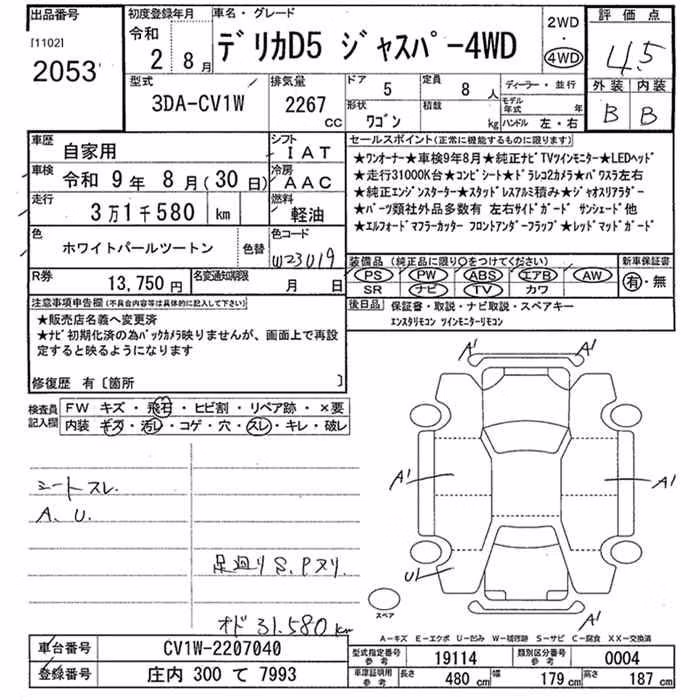 出品番号
[1102]
2053
初度登録年月
令和
2 8月
車名・グレード
デリカD5 ジャスパー4WD
2WD
・
4WD
評価点
4.5
外装 内装
B B
型式
3DA-CV1W
排気量
2267
cc
ドア
5
定員
8 人
形状
ワゴン
積載
kg
ディーラー・並行
モデル年式 年
ハンドル 左・右
車歴
自家用
シフト
IAT
車検
令和 9年 8月(30日)
冷房
AAC
走行
3万1千580 km
燃料
軽油
色
ホワイトパールツートン
色替
色コード
W23U19
R券
13,750円
名変通知期限
月 日
セールスポイント(正常に機能するものに限ります)
★ワンオーナー★車検9年8月★純正ナビTVツインモニター★LEDヘッド
★走行31000K台★コンビシート★ドラレコ2カメラ★パワスラ左右
★純正エンジンスターター★スタッドレスアルミ積み★ジャオスリアラダー
★パーツ類社外品多数有 左右サイドガード サンシェード他
★エルフォードマフラーカッター フロントアンダーフラップ★レッドマッドガード
装備品 (純正品に限り○をつけてください)
PS PW ABS エアB AW
SR ナビ TV カワ
新車保証書
有・無
後日品 保証書・取説・ナビ取説・スペアキー
エンスタリモコン ツインモニターリモコン
注意事項申告欄(不具合内容等は具体的に記入して下さい)
★販売店名義へ変更済
★ナビ初期化済の為バックカメラ映りませんが、画面上で再設
定すると映るようになります
修復歴 有〔箇所 〕
検査員
記入欄
FW キズ・飛石・ヒビ割・リペア跡・×要
内装 キズ・汚レ・コゲ・穴・スレ・キレ・破レ
シートスレ.
A、U.
足廻りS.Pヌリ.
オド31.580km
A1 A1
A1 A1
U1
A1
スペア
A-キズ E-エクボ U-凹み W-補修跡 S-サビ C-腐食 XX-交換済
車台番号
CV1W-2207040
登録番号
庄内 300 て 7993
型式指定番号
参考
19114
類別区分番号
参考
0004
車庫証明用
参考
長さ 480 cm
幅 179 cm
高さ 187 cm